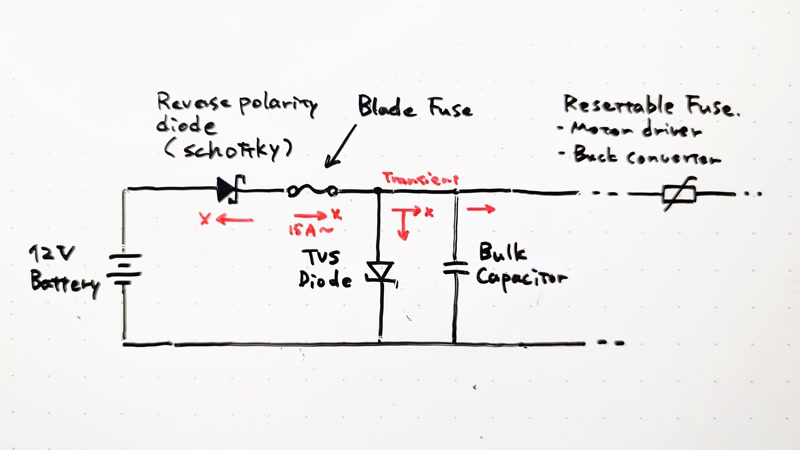 Reverse polarity
diode
(schottky)
Blade Fuse
Resettable Fuse.
- Motor driver
- Buck converter
Transient
x
x
15A~
x
12V
Battery
TVS
Diode
Bulk
Capacitor